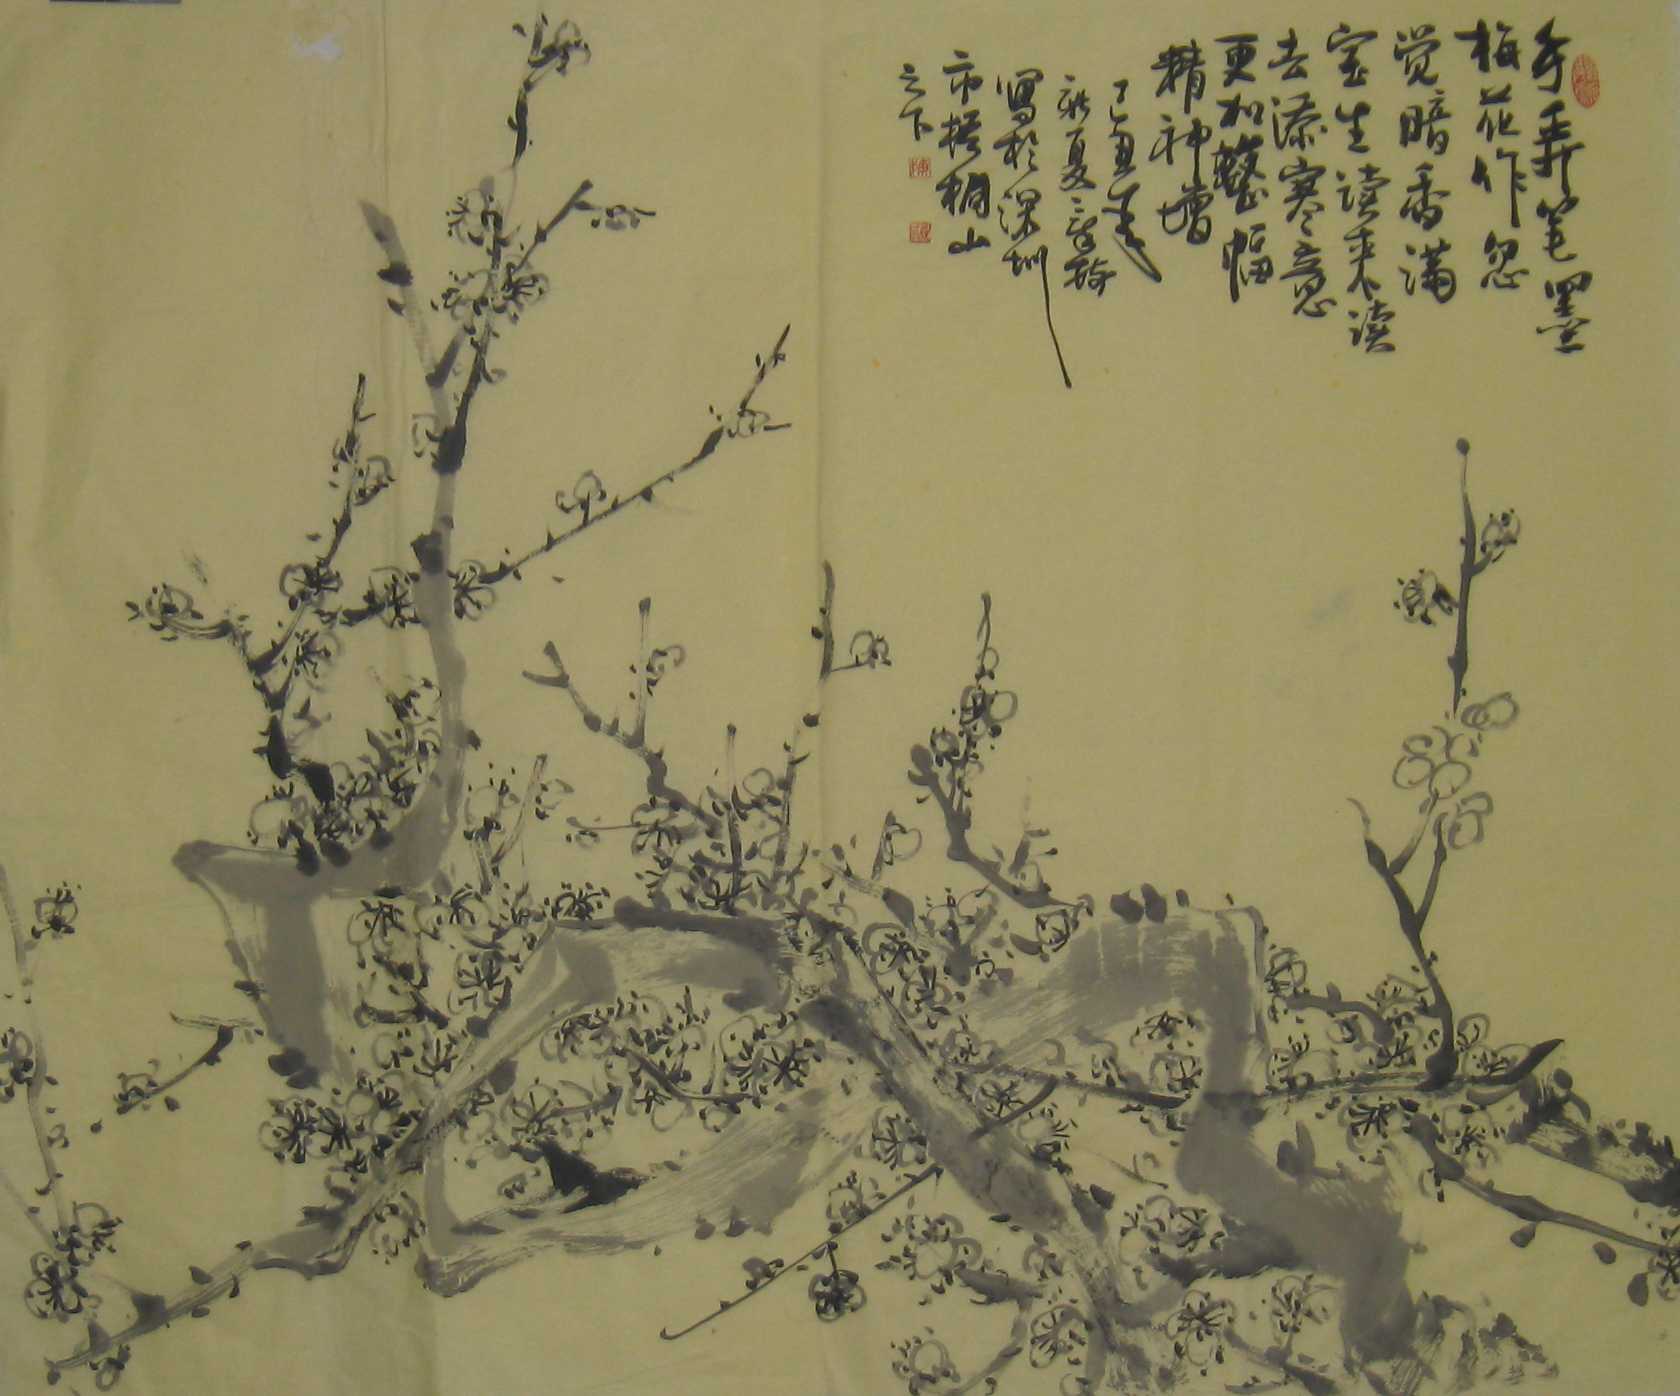 手弄笔墨
梅花作忽
觉暗香满
室生读来读
去添寒意
更加整幅
精神增
丁丑春
新夏
写於深圳
市梧桐山
之下